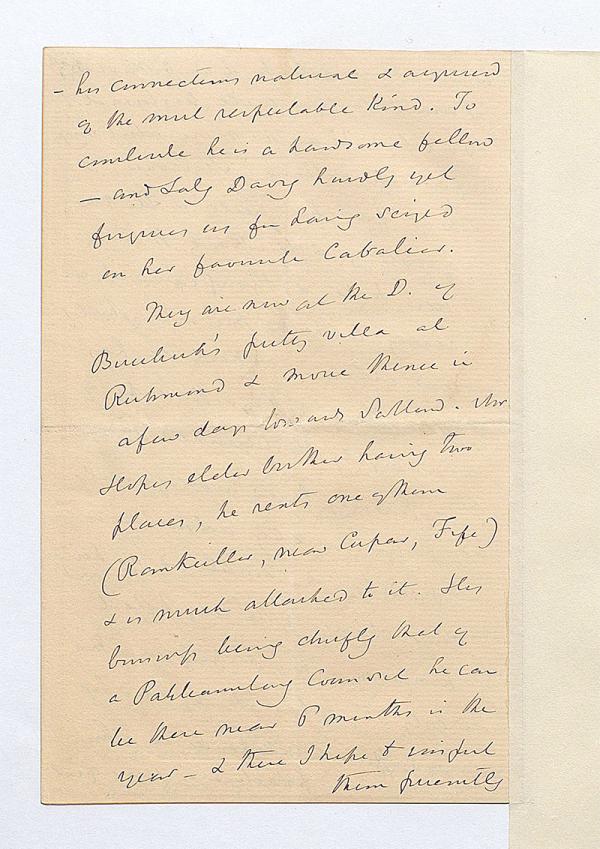 – his connections natural & acquired
of the most respectable kind. To
conclude he is a handsome fellow
– and Lady Davy hardly yet
forgives us for having seized
on her favourite Cavalier.
They are now at the D. of
Buccleuch's pretty villa at
Richmond & move thence in
a few days towards Scotland. Mr
Hope's elder brother having two
places, he rents one of them
(Rankeillor, near Cupar, Fife)
& is much attached to it. His
business being chiefly that of
a Parliamentary Counsel he can
be there near 6 months in the
year – & there I hope to visit
them frequently